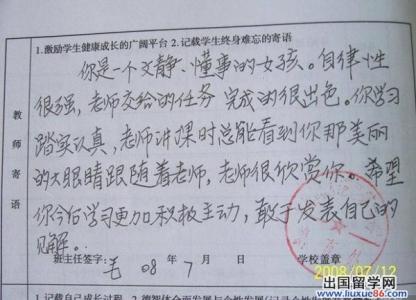 1.激励学生健康成长的广阔平台 2.记载学生终身难忘的寄语
教师寄语
你是一个文静、懂事的女孩。自律性
很强,老师交给的任务完成的很出色。你学习
踏实认真,老师讲课时总能看到你那美丽
的大眼睛跟随着老师,老师很欣赏你。希望
你今后学习更加积极主动,敢于发表自己的
见解。
班主任签字: 毛 08年7月 日 学校盖章
2008/07/12
1.记载自己成长过程
出国留学网
www.liuxue86.com